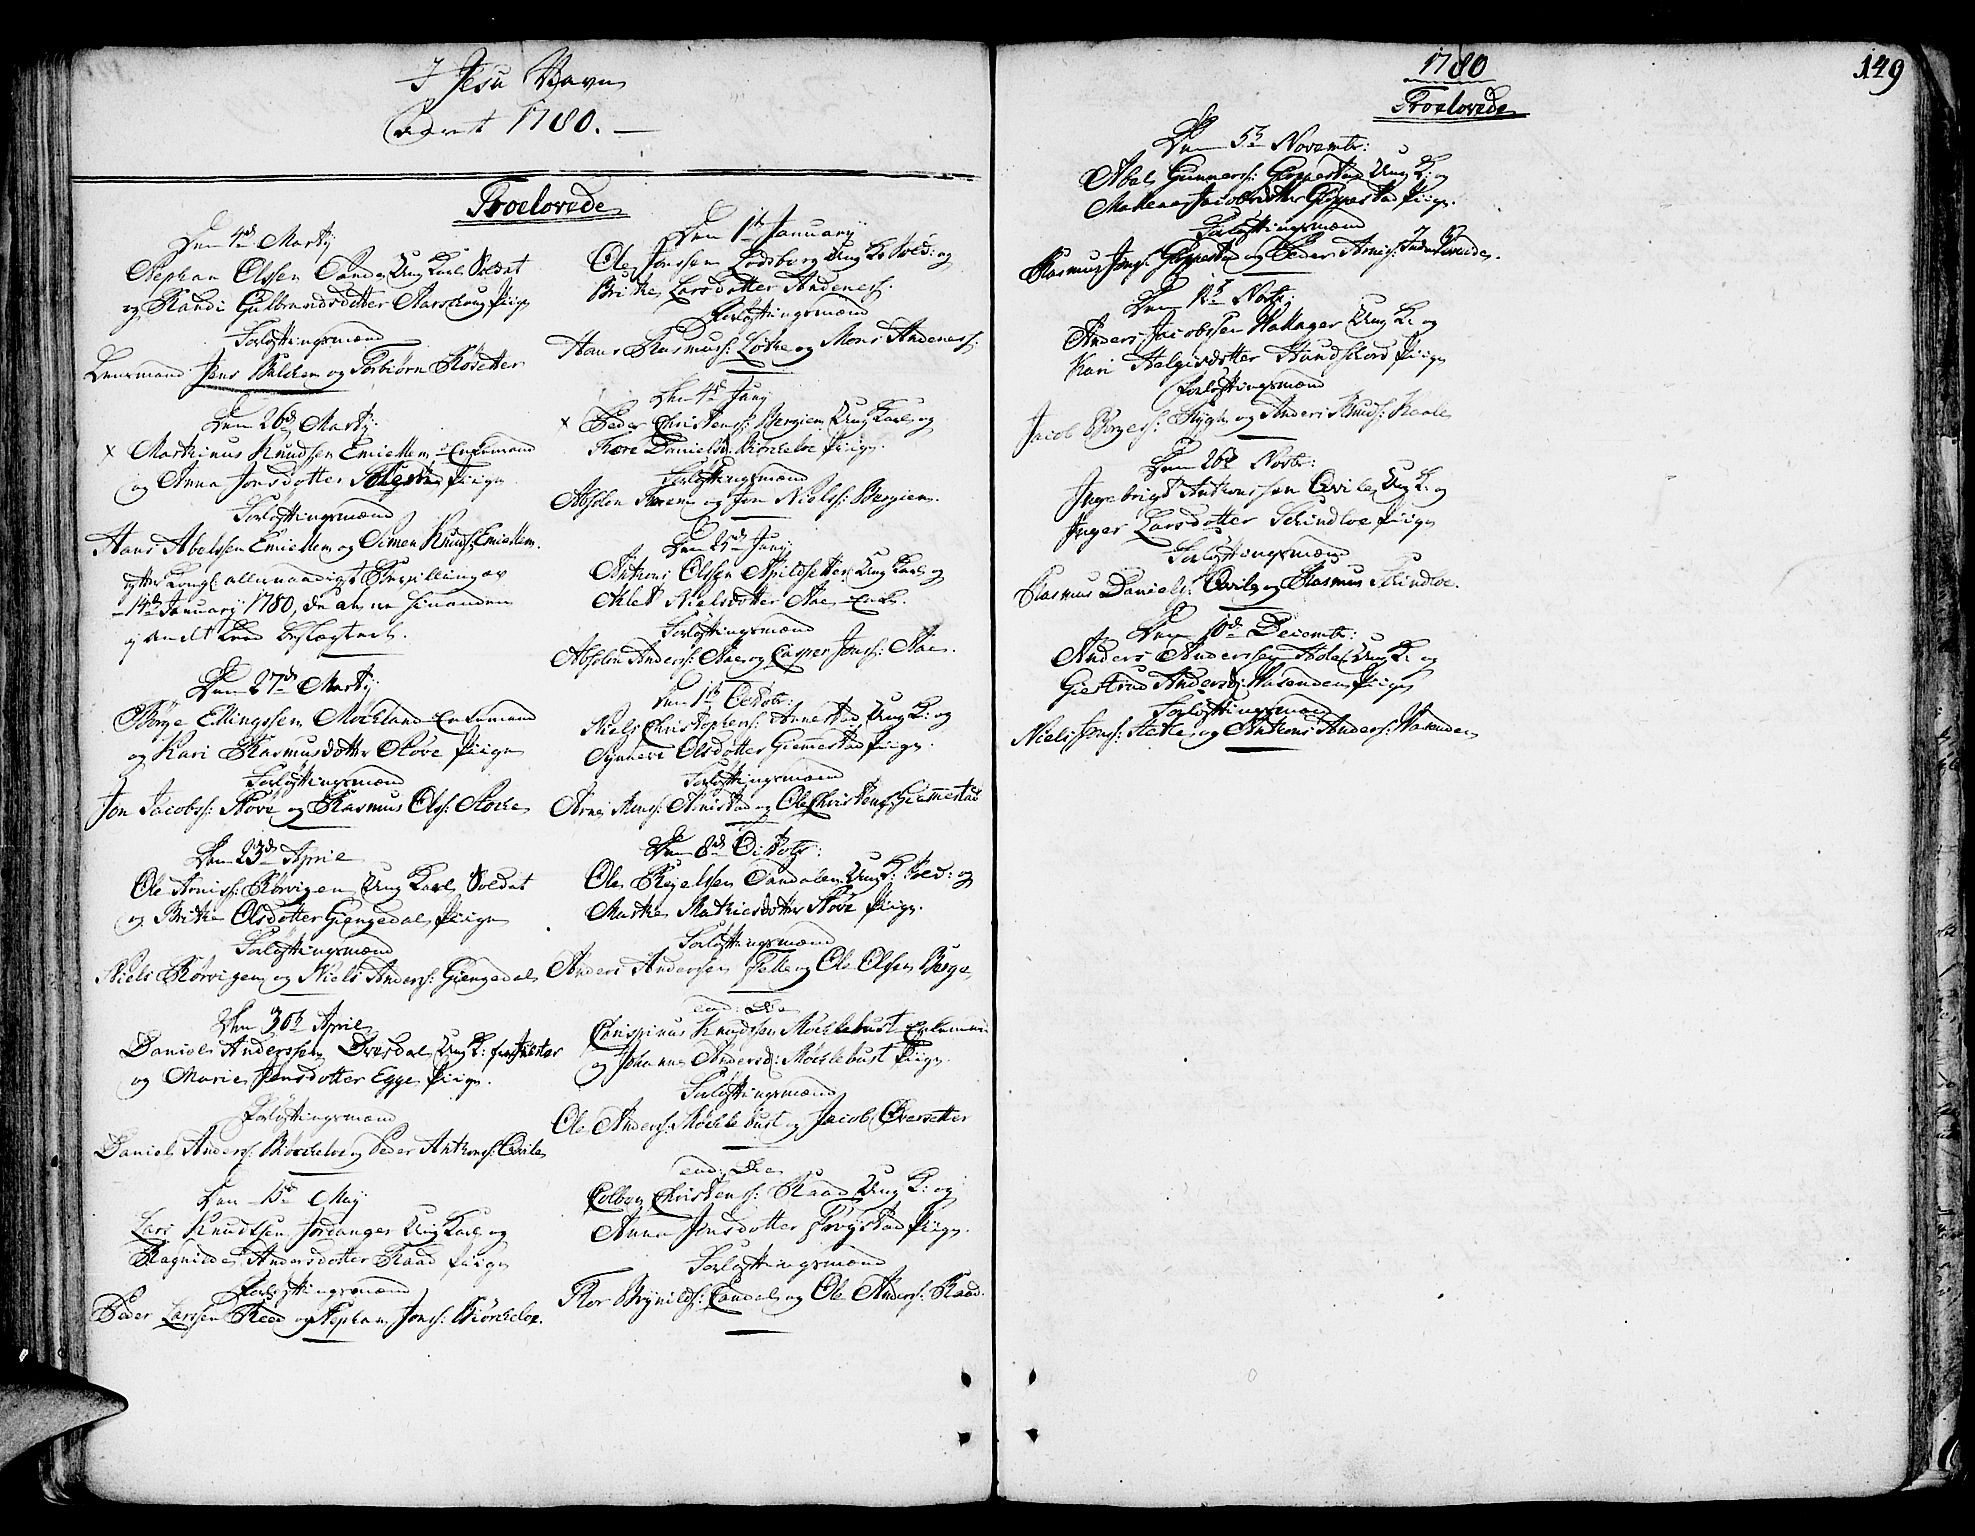 I Jesu Navn
Aaret 1780.
Troelovede
Den 4de Martÿ
Stephan Olssen Sande Ung Karl Soldat
og Randi Gulbrandsdotter Aarschoug Piige
Forløftningsmænd
Lensmand Jens Bulchen og Torbiørn Røsetter
Den 26de Martÿ
x Marthinus Knudsen Emiellem Enkemand
og Anna Jonsdotter Piige
Forløftningsmænd
Hans Abelssen Emiellem og Simen Knuds: Emiellem.
efter Kongl: allernaadigst Bevilling av
14de January 1780, da de ere hinanden
i andet Leed beslægtede.
Den 27de Martÿ
Børge Ellingssen Møchland Enkemand
og Kari Rasmusdotter Støve Piige
Forløftningsmænd
Jon Jacobs: Støve og Rasmus Ols: Støve
Den 23de April
Ole Arnis: Rørvigen Ung Karl Soldat
og Brithe Olsdotter Giengedal Piige
Forløftningsmænd
Niels Rørvigen og Niels Anders: Giengedal
Den 30te April
Daniel Anderssen Dvesdal Ung K: fra Jølster
og Marie Jensdotter Egge Piige.
Forløftningsmænd
Daniel Anders: Børcheloe og Peder Anthons: Qvile
Den 15de May
Lars Knudtsen Jordanger Ung Karl og
Ragnilde Andersdotter Raad Piige
Forløftningsmænd
Peder Larssen Reed og Stephan Jons: Biørcheloe.
Den 1te January
Ole Jonssen Lodsborg Ung K: Sold: og
Brithe Larsdotter Andenes.
Forløftningsmænd
Hans Rasmus: Lothe og Mons Andenes.
Den 4de Juny
x Peder Christens: Bergiem Ung Karl og
Thore Danielsd: Børcheloe Piige
Forløftningsmænd
Absolon Reem og Jon Niels: Bergiem.
Den 25de Juny
Anthoni Olssen Myldsetter Ung Karl og
Ahlet Nielsdotter Aae Enke.
Forløftningsmænd
Absolon Anders: Aae og Casper Jons: Aae.
Den 1te Octobr:
Niels Christophers: Arnestad Ung K: og
Synneve Olsdotter Giemmestad Piige.
Forløftningsmænd
Arne Mons: Arnestad og Ole Christens: Giemmestad
Den 8de Octobr:
Ole Kiyelssen Sandalen Ung K: Sold: og
Marthe Mathiesdotter Støve Piige.
Forløftningsmænd
Anders Anderssen Felle og Ole Olssen Berge
eod: Die
Chrispinus Knudssen Møchlebust Enkemand
og Johanne Andersd: Møchlebust Piige.
Forløftningsmænd
Ole Anders: Møchlebust og Jacob Øvrsetter
eod: Die
Colbeen Christens: Raad Ung K: og
Anna Jonsdotter Frøystad Piige.
Forløftningsmænd
Thor Brynilds: Eandal og Ole Anders: Raad.
1780
149
Troelovede
Den 5te Novembr:
Abel Gunners: Gloppestad Ung K: og
Mallene Jacobsdotter Gloppestad Piige.
Forløftningsmænd
Rasmus Jons: Gloppestad og Peder Arnis: Indre
Den 12te Novbr:
Anders Jacobssen Hallager Ung K: og
Kari Helgisdotter Hundskord Piige
Forløftningsmænd
Jacob Børges: Rygh og Anders Knuds: Kaale
Den 26de Novbr:
Ingebrigt Anthonssen Qvile Ung K: og
Inger Larsdotter Schindloe Piige
Forløftningsmænd
Rasmus Daniels: Qvile og Rasmus Schindloe.
Den 10de Decembr:
Anders Anderssen Hole Ung K: og
Giertrud Andersd: Hasenden Piige
Forløftningsmænd
Niels Jons: og Anthoni Anders: Hasenden